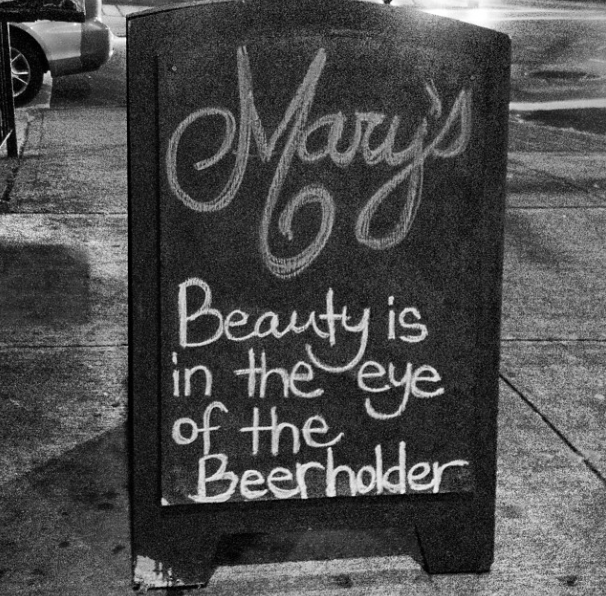 Mary's
Beauty is
in the eye
of the
Beerholder